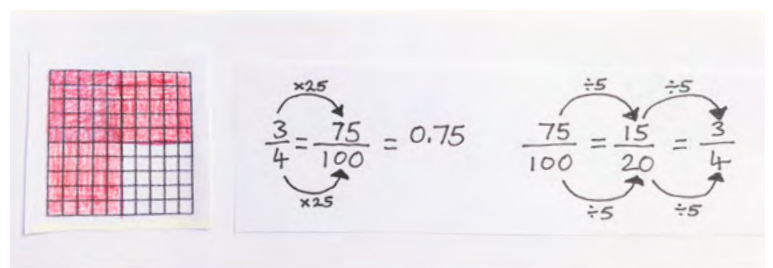 ×25
3/4 = 75/100 = 0.75
×25
÷5 ÷5
75/100 = 15/20 = 3/4
÷5 ÷5